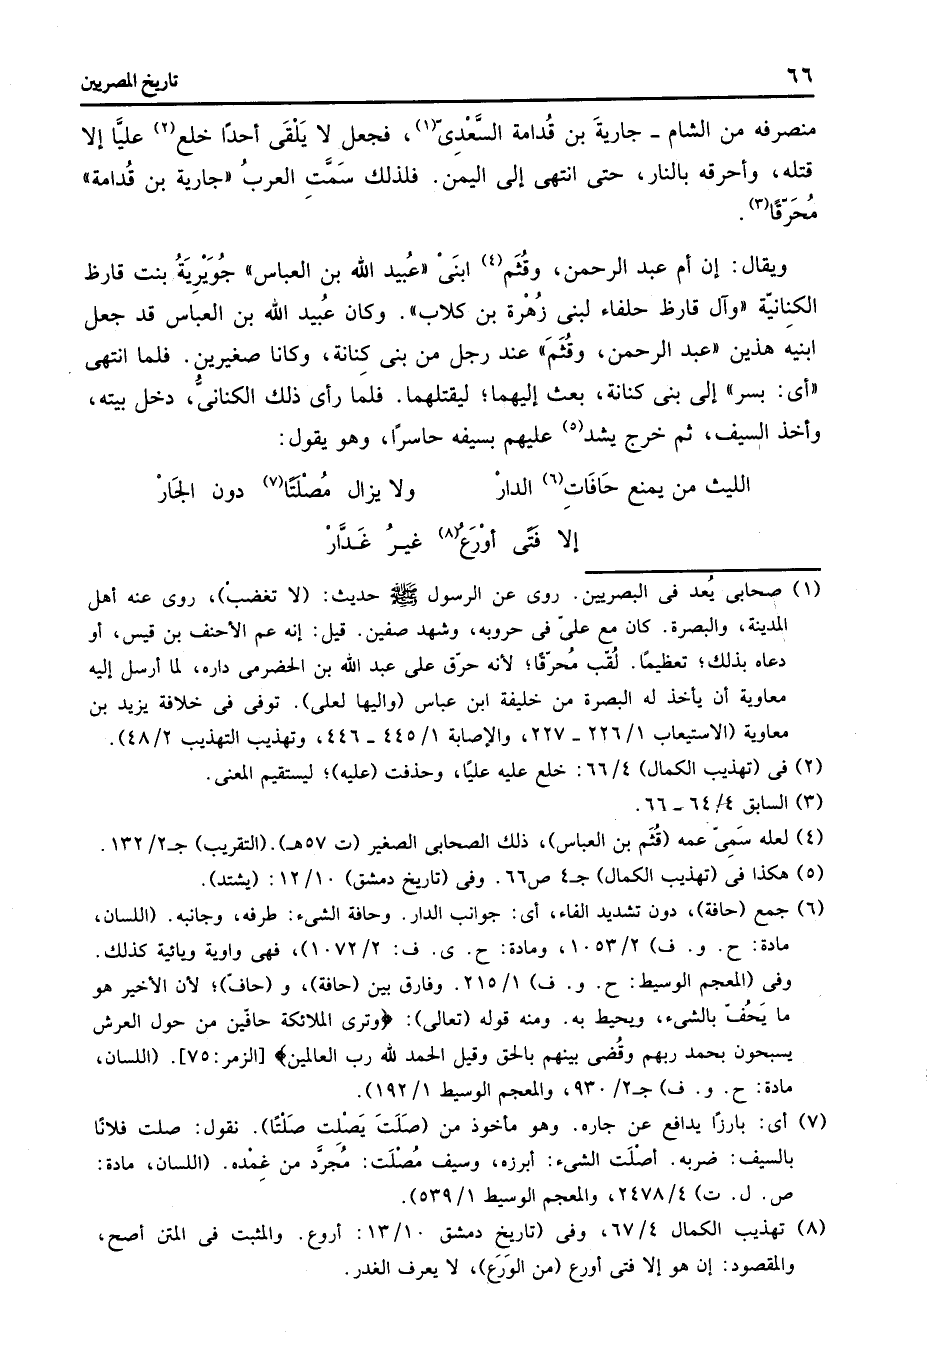 ٦٦
تاريخ المصريين
منصرفه من الشام ـ جاريةَ بن قُدامة السَّعْدِىّ(١)، فجعل لا يَلْقَى أحدًا خلع(٢) عليًّا إلا
قتله، وأحرقه بالنار، حتى انتهى إلى اليمن. فلذلك سَمَّتِ العربُ «جارية بن قُدامة»
مُحَرّقًا(٣).
ويقال: إن أم عبد الرحمن، وقُثَم(٤) ابنَىْ «عُبيد الله بن العباس» جُوَيْرِيَةُ بنت قارظ
الكنانيّة «وآل قارظ حلفاء لبنى زُهْرة بن كلاب». وكان عُبيد الله بن العباس قد جعل
ابنيه هذين «عبد الرحمن، وقُثَمَ» عند رجل من بنى كِنانة، وكانا صغيرين. فلما انتهى
«أى: بسر» إلى بنى كنانة، بعث إليهما؛ ليقتلهما. فلما رأى ذلك الكنانىُّ، دخل بيته،
وأخذ السيف، ثم خرج يشد(٥) عليهم بسيفه حاسرًا، وهو يقول:
الليث من يمنع حَافَاتِ(٦) الدارْ ولا يزال مُصْلَتًا(٧) دون الجَارْ
إلا فَتًى أوْرَعُ(٨) غيـرُ غَـدَّارْ
(١) صحابى يُعد فى البصريين. روى عن الرسول ﷺ حديث: (لا تغضبْ)، روى عنه أهل
المدينة، والبصرة. كان مع علىّ فى حروبه، وشهد صفين. قيل: إنه عم الأحنف بن قيس، أو
دعاه بذلك؛ تعظيمًا. لُقّب مُحرّقًا؛ لأنه حرّق على عبد الله بن الحضرمى داره، لما أرسل إليه
معاوية أن يأخذ له البصرة من خليفة ابن عباس (واليها لعلى). توفى فى خلافة يزيد بن
معاوية (الاستيعاب ١/ ٢٢٦ ـ ٢٢٧، والإصابة ١/ ٤٤٥ ـ ٤٤٦، وتهذيب التهذيب ٢/ ٤٨).
(٢) فى (تهذيب الكمال) ٤/ ٦٦: خلع عليه عليًا، وحذفت (عليه)؛ ليستقيم المعنى.
(٣) السابق ٤/ ٦٤ ـ ٦٦.
(٤) لعله سَمِىّ عمه (قُثَم بن العباس)، ذلك الصحابى الصغير (ت ٥٧هـ).(التقريب) جـ٢/ ١٣٢.
(٥) هكذا فى (تهذيب الكمال) جـ٤ ص٦٦. وفى (تاريخ دمشق) ١٠/ ١٢: (يشتد).
(٦) جمع (حافة)، دون تشديد الفاء، أى: جوانب الدار. وحافة الشىء: طرفه، وجانبه. (اللسان،
مادة: ح. و. ف) ٢/ ١٠٥٣، ومادة: ح. ى. ف: ٢/ ١٠٧٢)، فهى واوية ويائية كذلك.
وفى (المعجم الوسيط: ح. و. ف) ١/ ٢١٥. وفارق بين (حافة)، و (حافّ)؛ لأن الأخير هو
ما يَحُفّ بالشىء، ويحيط به. ومنه قوله (تعالى): ﴿وترى الملائكة حافّين من حول العرش
يسبحون بحمد ربهم وقُضى بينهم بالحق وقيل الحمد لله رب العالمين﴾ [الزمر: ٧٥]. (اللسان،
مادة: ح. و. ف) جـ٢/ ٩٣٠، والمعجم الوسيط ١/ ١٩٢).
(٧) أى: بارزًا يدافع عن جاره. وهو مأخوذ من (صَلَتَ يَصْلِت صَلْتًا). نقول: صلت فلانًا
بالسيف: ضربه. أصْلَت الشىءَ: أبرزه، وسيف مُصْلَت: مُجرَّد من غِمْده. (اللسان، مادة:
ص. ل. ت) ٤/ ٢٤٧٨، والمعجم الوسيط ١/ ٥٣٩).
(٨) تهذيب الكمال ٤/ ٦٧، وفى (تاريخ دمشق ١٠/ ١٣: أروع. والمثبت فى المتن أصح،
والمقصود: إن هو إلا فتى أورع (من الوَرَع)، لا يعرف الغدر.